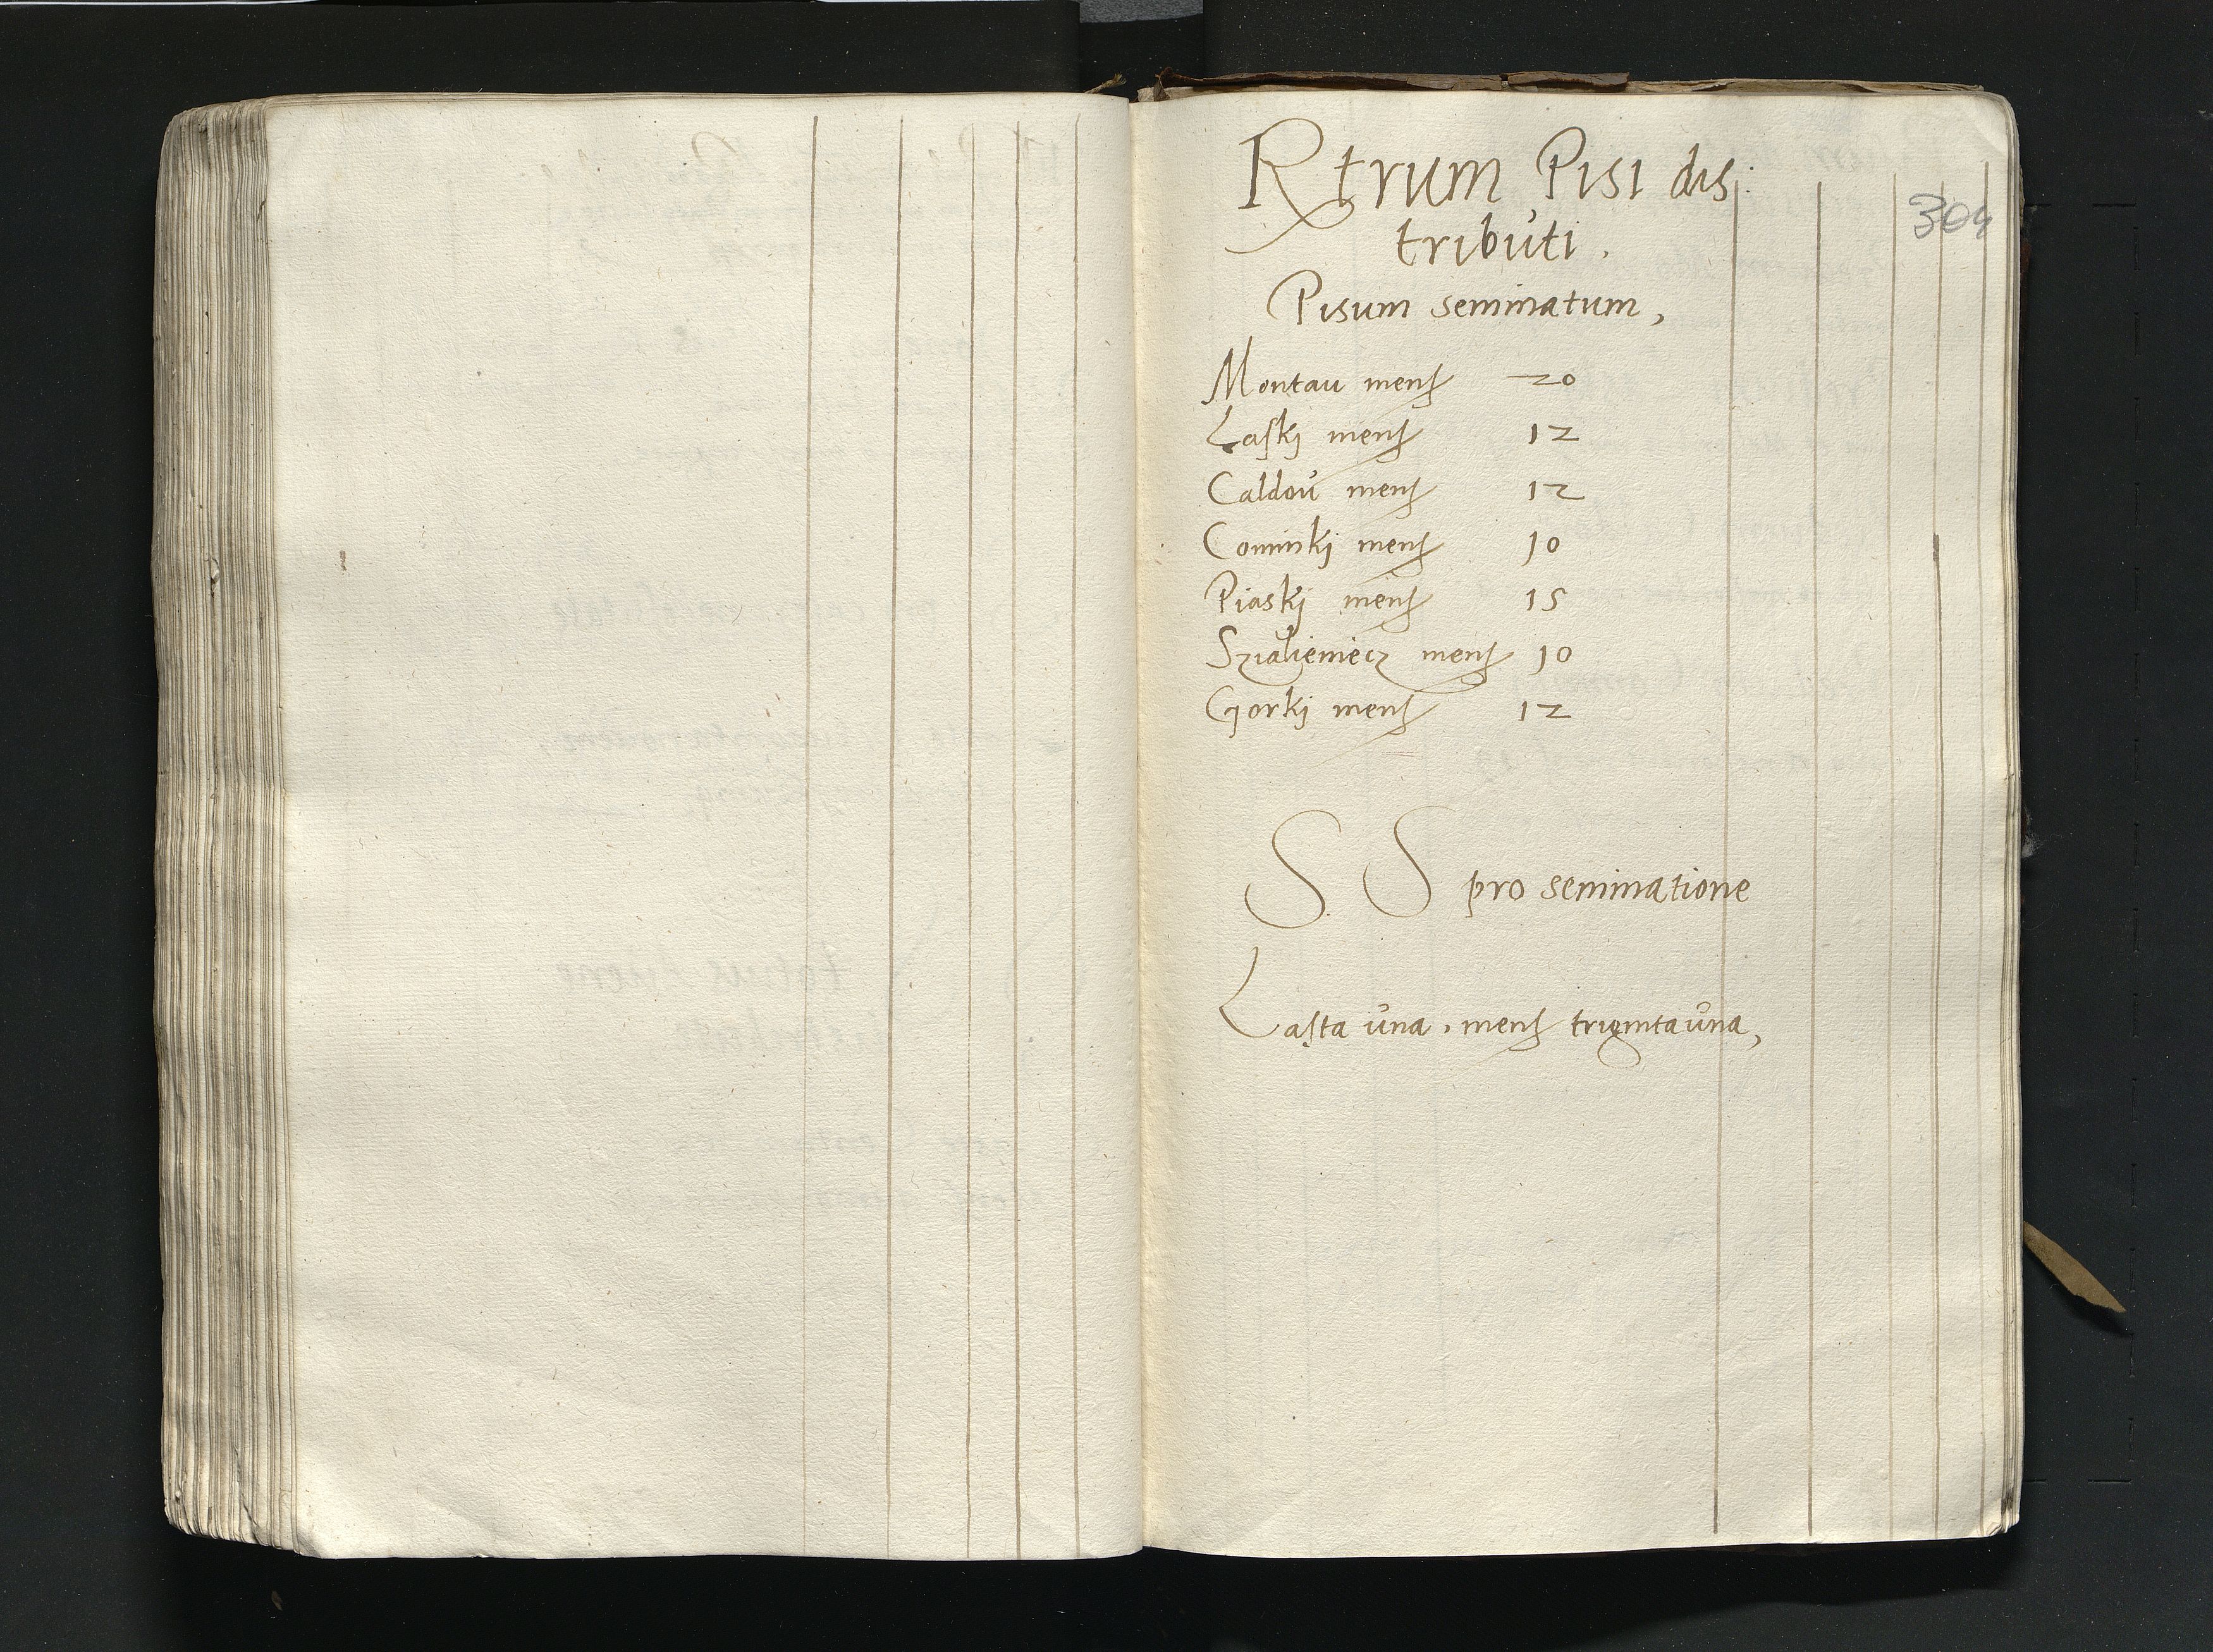 304
Rtrum Pisi dis:
tributi.
Pisum seminatum,
Montau menſ 20
Laſki menſ 12
Caldou menſ 12
Cominkj menſ 10
Piaskj menſ 15
menſ 10
Gorkj menſ 12
S S pro seminatione
Laſta una. menſ triginta una,